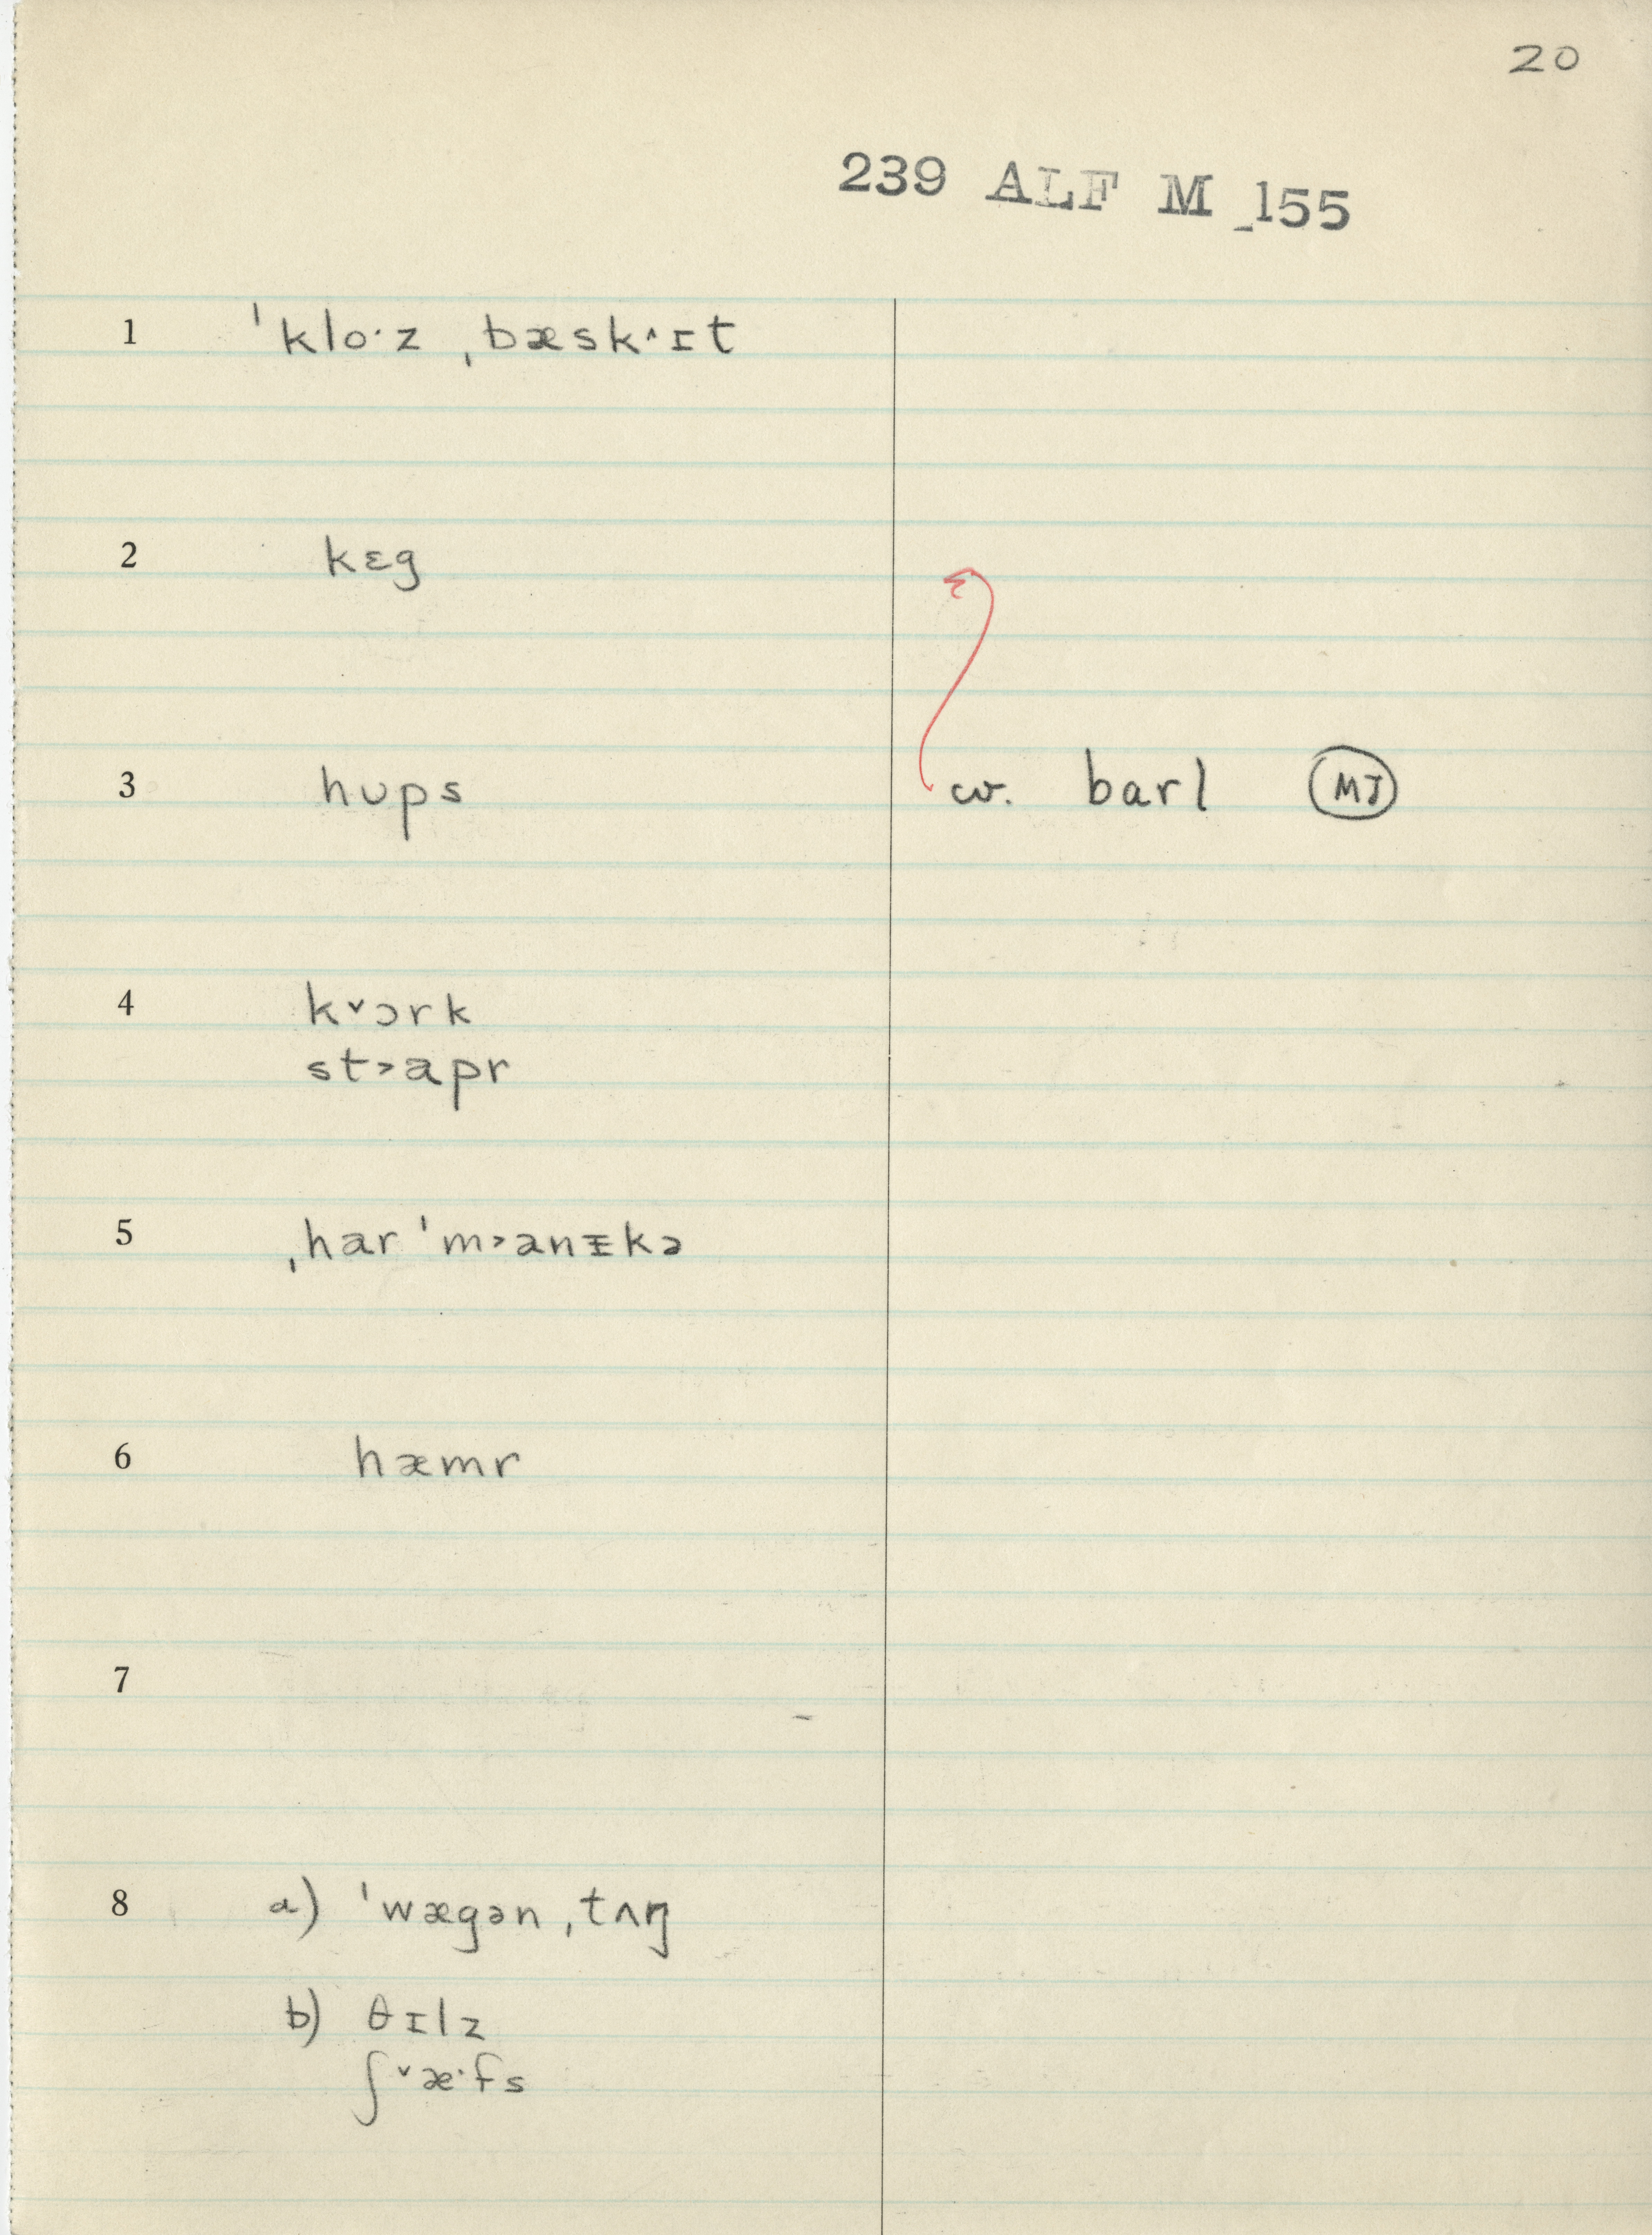 20
239 ALF M 155
1 ˈkloˑz ˌbæskˑ˄ɪt
2 kɛg
3 hʊps cv. barl MJ
4 k˅ɔrk
st˃apr
5 ˌharˈm˃anᵻkə
6 hæmr
7
8 a) ˈwægən ˌtʌŋ
b) θɪlz
ʃ˅æˑfs